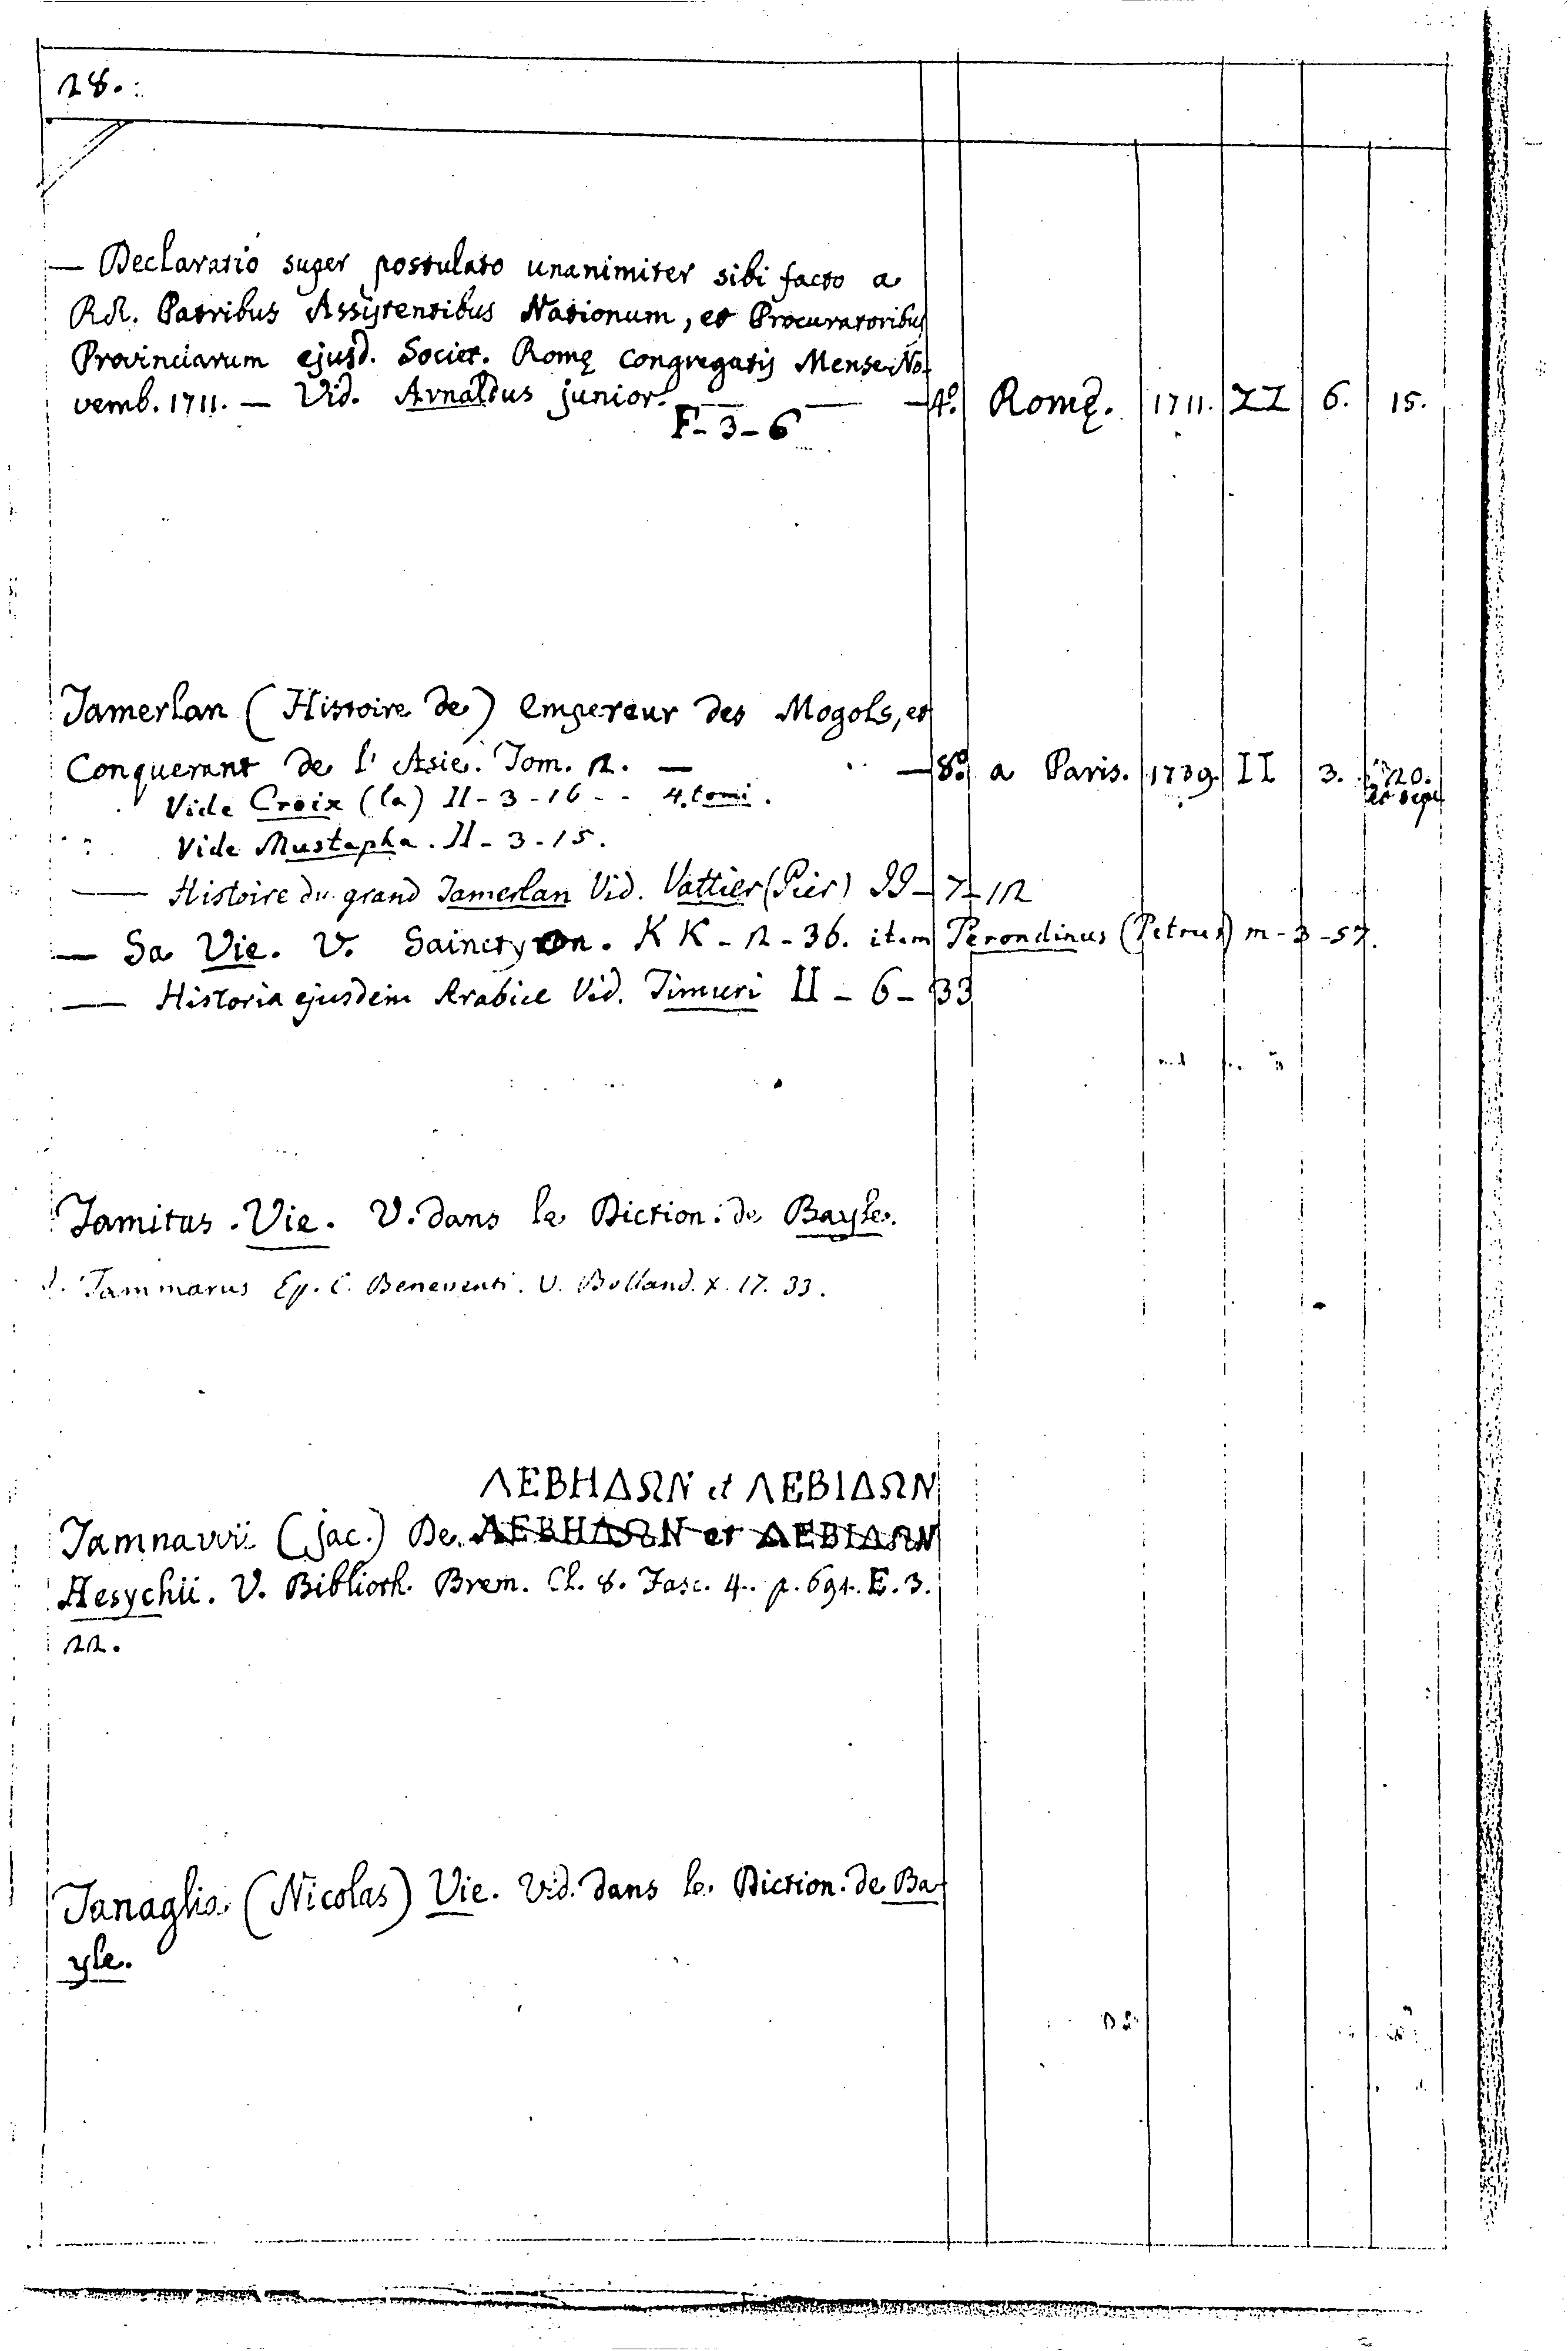 28.
— Declaratio super postulato unanimiter sibi facto a
RR. Patribus Assistentibus Nationum, et Procuratoribus
Provinciarum ejusd. Societ. Romę congregatis Mense No-
vemb. 1711. — Vid. Arnaldus junior. — — 4.º Romę. 1711. ZZ 6. 15.
F-3-6
Tamerlan (Histoire de) Empereur des Mogols, et
Conquerant de l'Asie. Tom. 2. — — 8.º a Paris. 1739. II 3. 20.
et seq.
Vide Croix (la) II-3-16 - - 4. tomi.
Vide Mustapha. II-3-15.
— Histoire du grand Tamerlan Vid. Vattier (Pier) II-7-12
— Sa Vie. V. Sainctyon. KK-2-36. item Perondinus (Petrus) m-3-57.
— Historia ejusdem Arabice Vid. Timuri II-6-33
Tamitus. Vie. V. dans le Diction. de Bayle.
S. Tammarus Ep. C. Beneventi. V. Bolland. X. 17. 33.
ΛΕΒΗΔΩΝ et ΛΕΒΙΔΩΝ
Tamnavvii (jac.) De ΛΕΒΗΔΩΝ et ΔΕΒΙΔΩΝ
Hesychii. V. Biblioth. Brem. Cl. 8. Fasc. 4. p. 694. E. 3.
22.
Tanaglia (Nicolas) Vie. Vid. dans le Diction. de Ba-
yle.